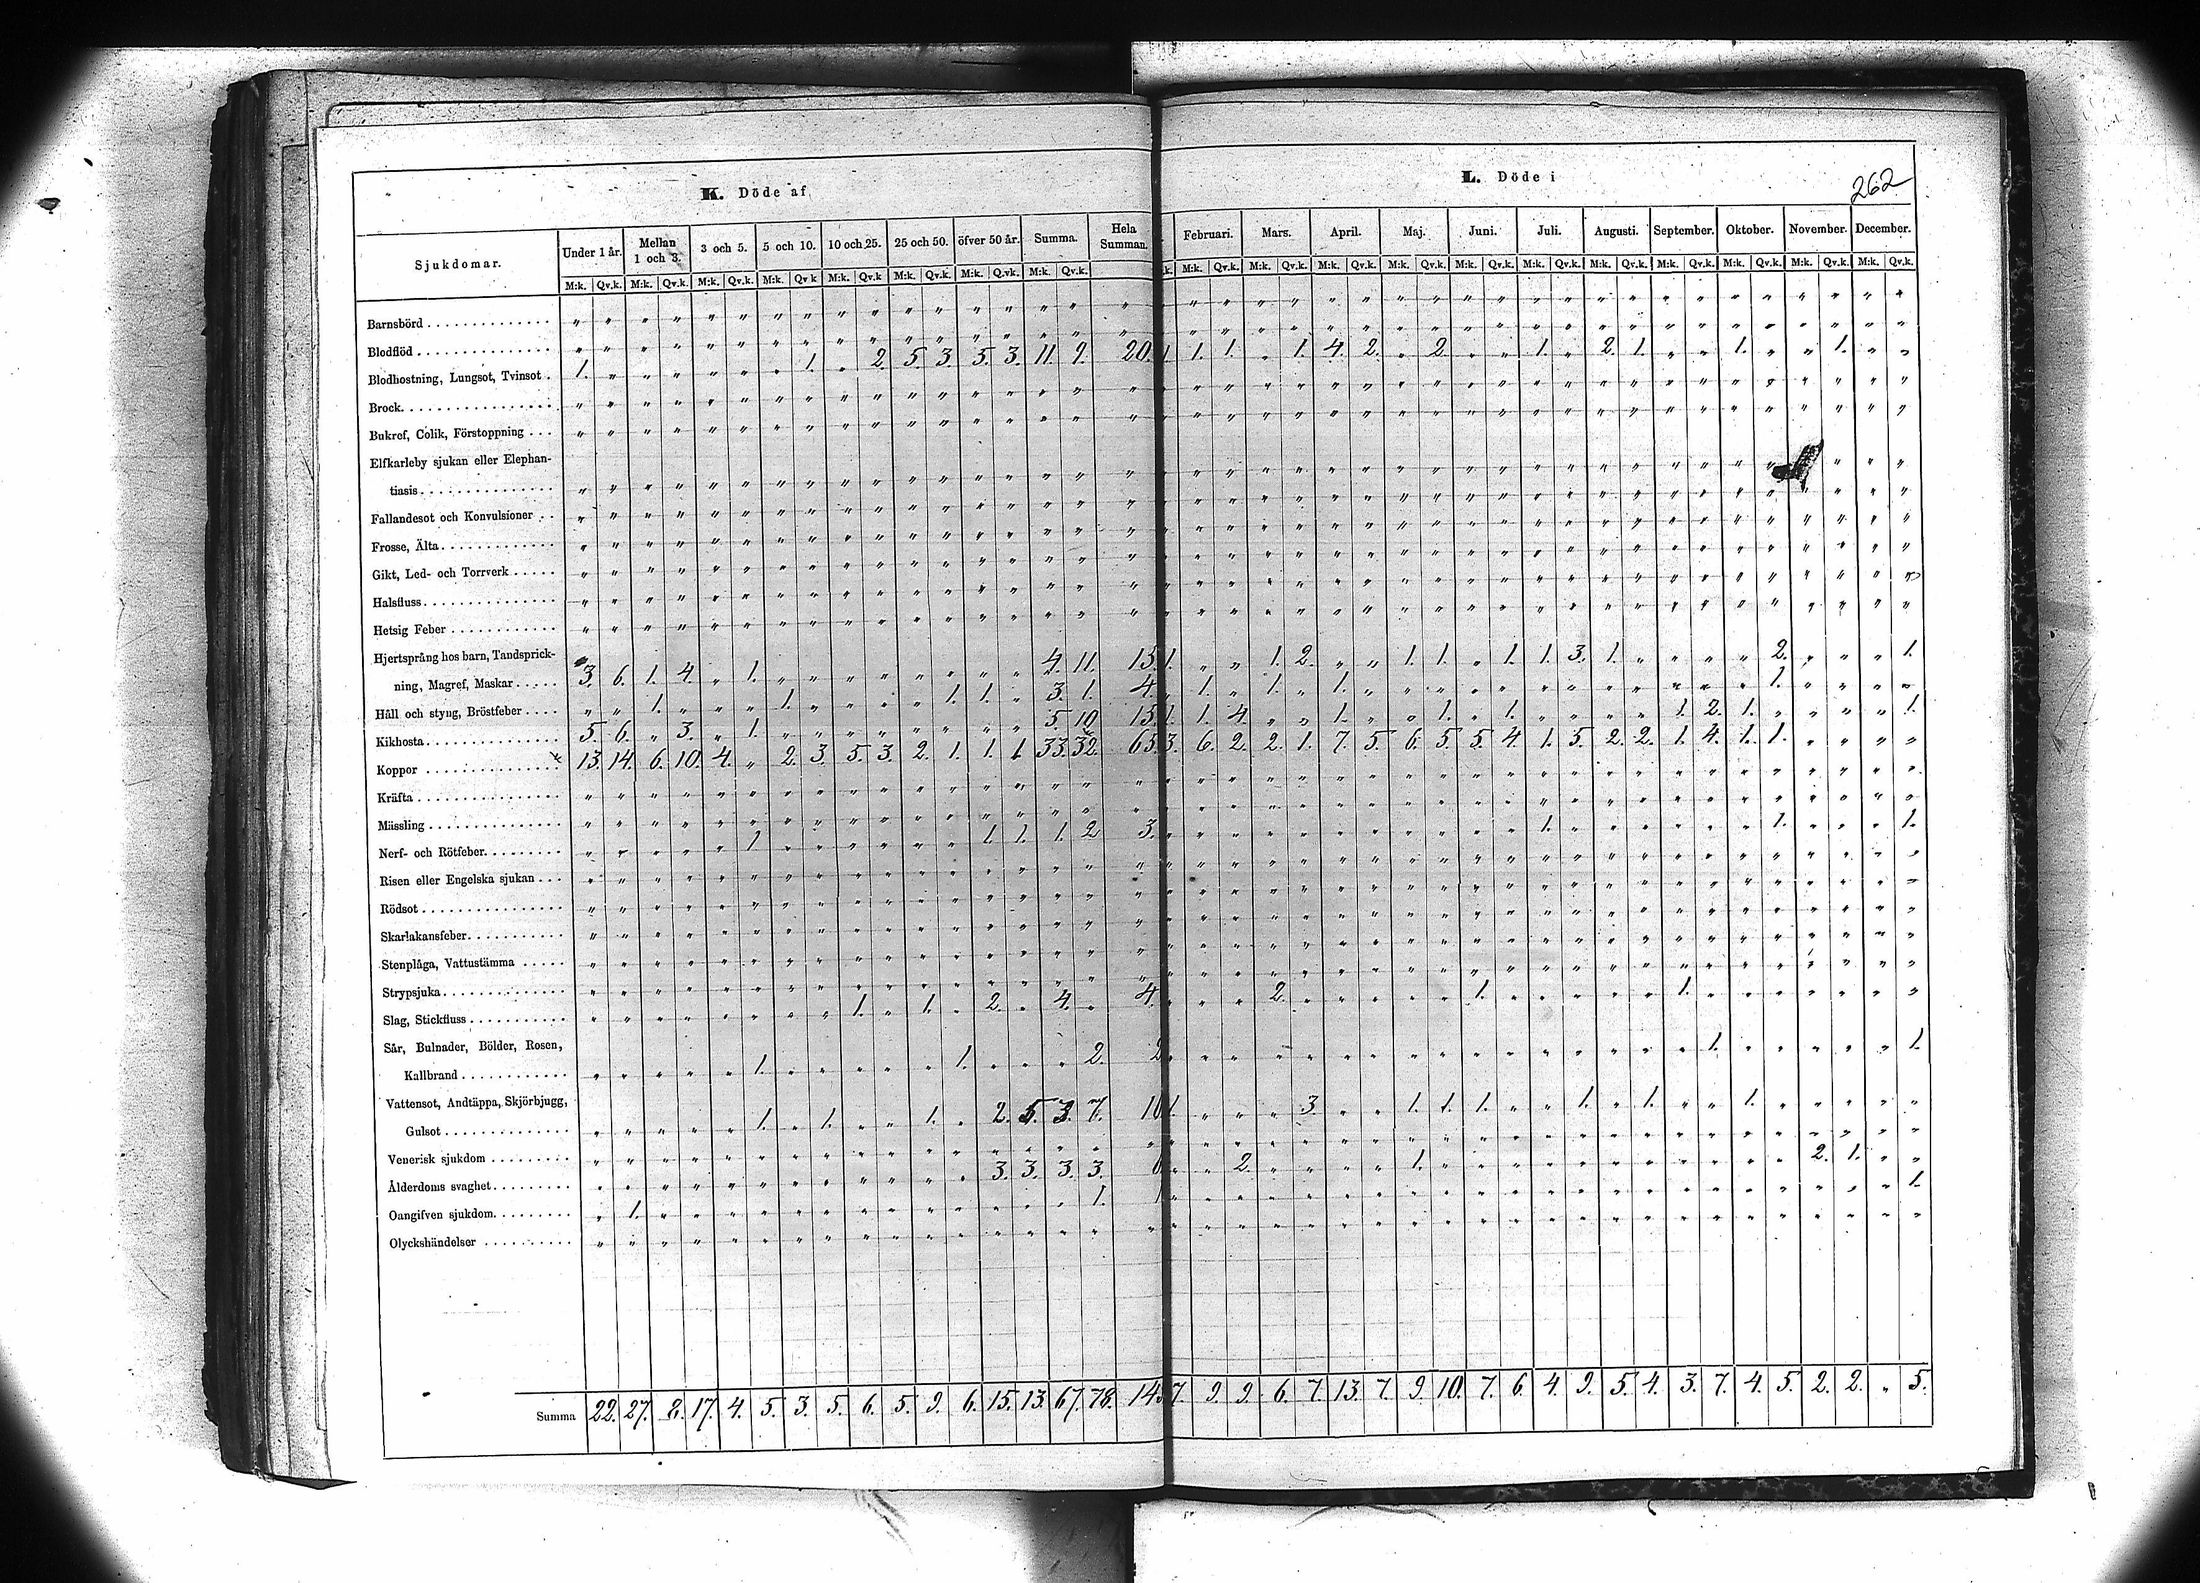 K. Döde af
L. Döde i
262
Sjukdomar. Under 1 år. Mellan 1 och 3. 3 och 5. 5 och 10. 10 och 25. 25 och 50. öfver 50 år. Summa. Hela Summan. Februari. Mars. April. Maj. Juni. Juli. Augusti. September. Oktober. November. December.
M:k. Qv.k. M:k. Qv.k. M:k. Qv.k. M:k. Qv k M:k. Qv.k M:k. Qv.k. M:k. Q.vk. M:k. Qv.k. k. M:k. Qv.k. M:k. Qv.k. M:k. Qv.k. M:k. Qv.k. M:k. Qv.k. M:k. Qv.k. M:k. Qv.k. M:k. Qv.k. M:k. Qv.k. M:k. Qv.k. M:k. Qv.k.
Barnsbörd
Blodflöd
Blodhostning, Lungsot, Tvinsot . 1. " " " " " " 1. " 2. 5. 3. 5. 3. 11. 9. 20. 1. 1. 1. " 1. 4. 2. " 2. " " 1. " 2. 1. " " 1. " " 1. " "
Brock
Bukref, Colik, Förstoppning . . .
Elfkarleby sjukan eller Elephan-
tiasis
Fallandesot och Konvulsioner . .
Frosse, Älta
Gikt, Led- och Torrverk
Halsfluss
Hetsig Feber
Hjertsprång hos barn, Tandsprick-
ning, Magref, Maskar 3. 6. 1. 4. " 1. " " " " " " " " 4. 11. 15. 1. " " 1. 2. " " 1. 1. " 1. 1. 3. 1. " " " " 2. " " " 1.
Håll och styng, Bröstfeber . . . . " " 1. " " " 1. " " " " 1. 1. " 3. 1. 4. " 1. " 1. " 1. " " " " " " " " " " " " 1. " " " "
Kikhosta 5. 6. " 3. " 1. " " " " " " " " 5. 10. 15. 1. 1. 4. " " 1. " " 1. " 1. " " " " 1. 2. 1. " " " " 1.
Koppor 13. 14. 6. 10. 4. " 2. 3. 5. 3. 2. 1. 1. 1. 33. 32. 65. 3. 6. 2. 2. 1. 7. 5. 6. 5. 5. 4. 1. 5. 2. 2. 1. 4. 1. 1. " " " "
Kräfta
Mässling
Nerf- och Rötfeber " " " " " 1. " " " " " " 1. 1. 1. 2. 3. " " " " " " " " " " " 1. " " " " " " 1. " " " 1.
Risen eller Engelska sjukan . . .
Rödsot
Skarlakansfeber
Stenplåga, Vattustämma
Strypsjuka
Slag, Stickfluss " " " " " " " " 1. " 1. " 2. " 4. " 4. " " " 2. " " " " " 1. " " " " " 1. " " " " " " "
Sår, Bulnader, Bölder, Rosen,
Kallbrand " " " " " 1. " " " " " 1. " " " 2. 2 " " " " " " " " " " " " " " " " 1. " " " " " 1.
Vattensot, Andtäppa, Skjörbjugg,
Gulsot " " " " " 1. " 1. " " 1. " 2. 5. 3. 7. 10 1. " " " 3. " " 1. 1. 1. " " 1. " 1. " " 1. " " " " "
Venerisk sjukdom
Ålderdoms svaghet " " " " " " " " " " " " 3. 3. 3. 3. 6 " " 2. " " " " 1. " " " " " " " " " " " 2. 1. " "
Oangifven sjukdom " 1. " " " " " " " " " " " " " 1. 1 " " " " " " " " " " " " " " " " " " " " " " 1.
Olyckshändelser
Summa 22. 27. 8. 17. 4. 5. 3. 5. 6. 5. 9. 6. 15. 13. 67. 78. 14 7. 9. 9. 6. 7. 13. 7. 9. 10. 7. 6. 4. 9. 5. 4. 3. 7. 4. 5. 2. 2. " 5.